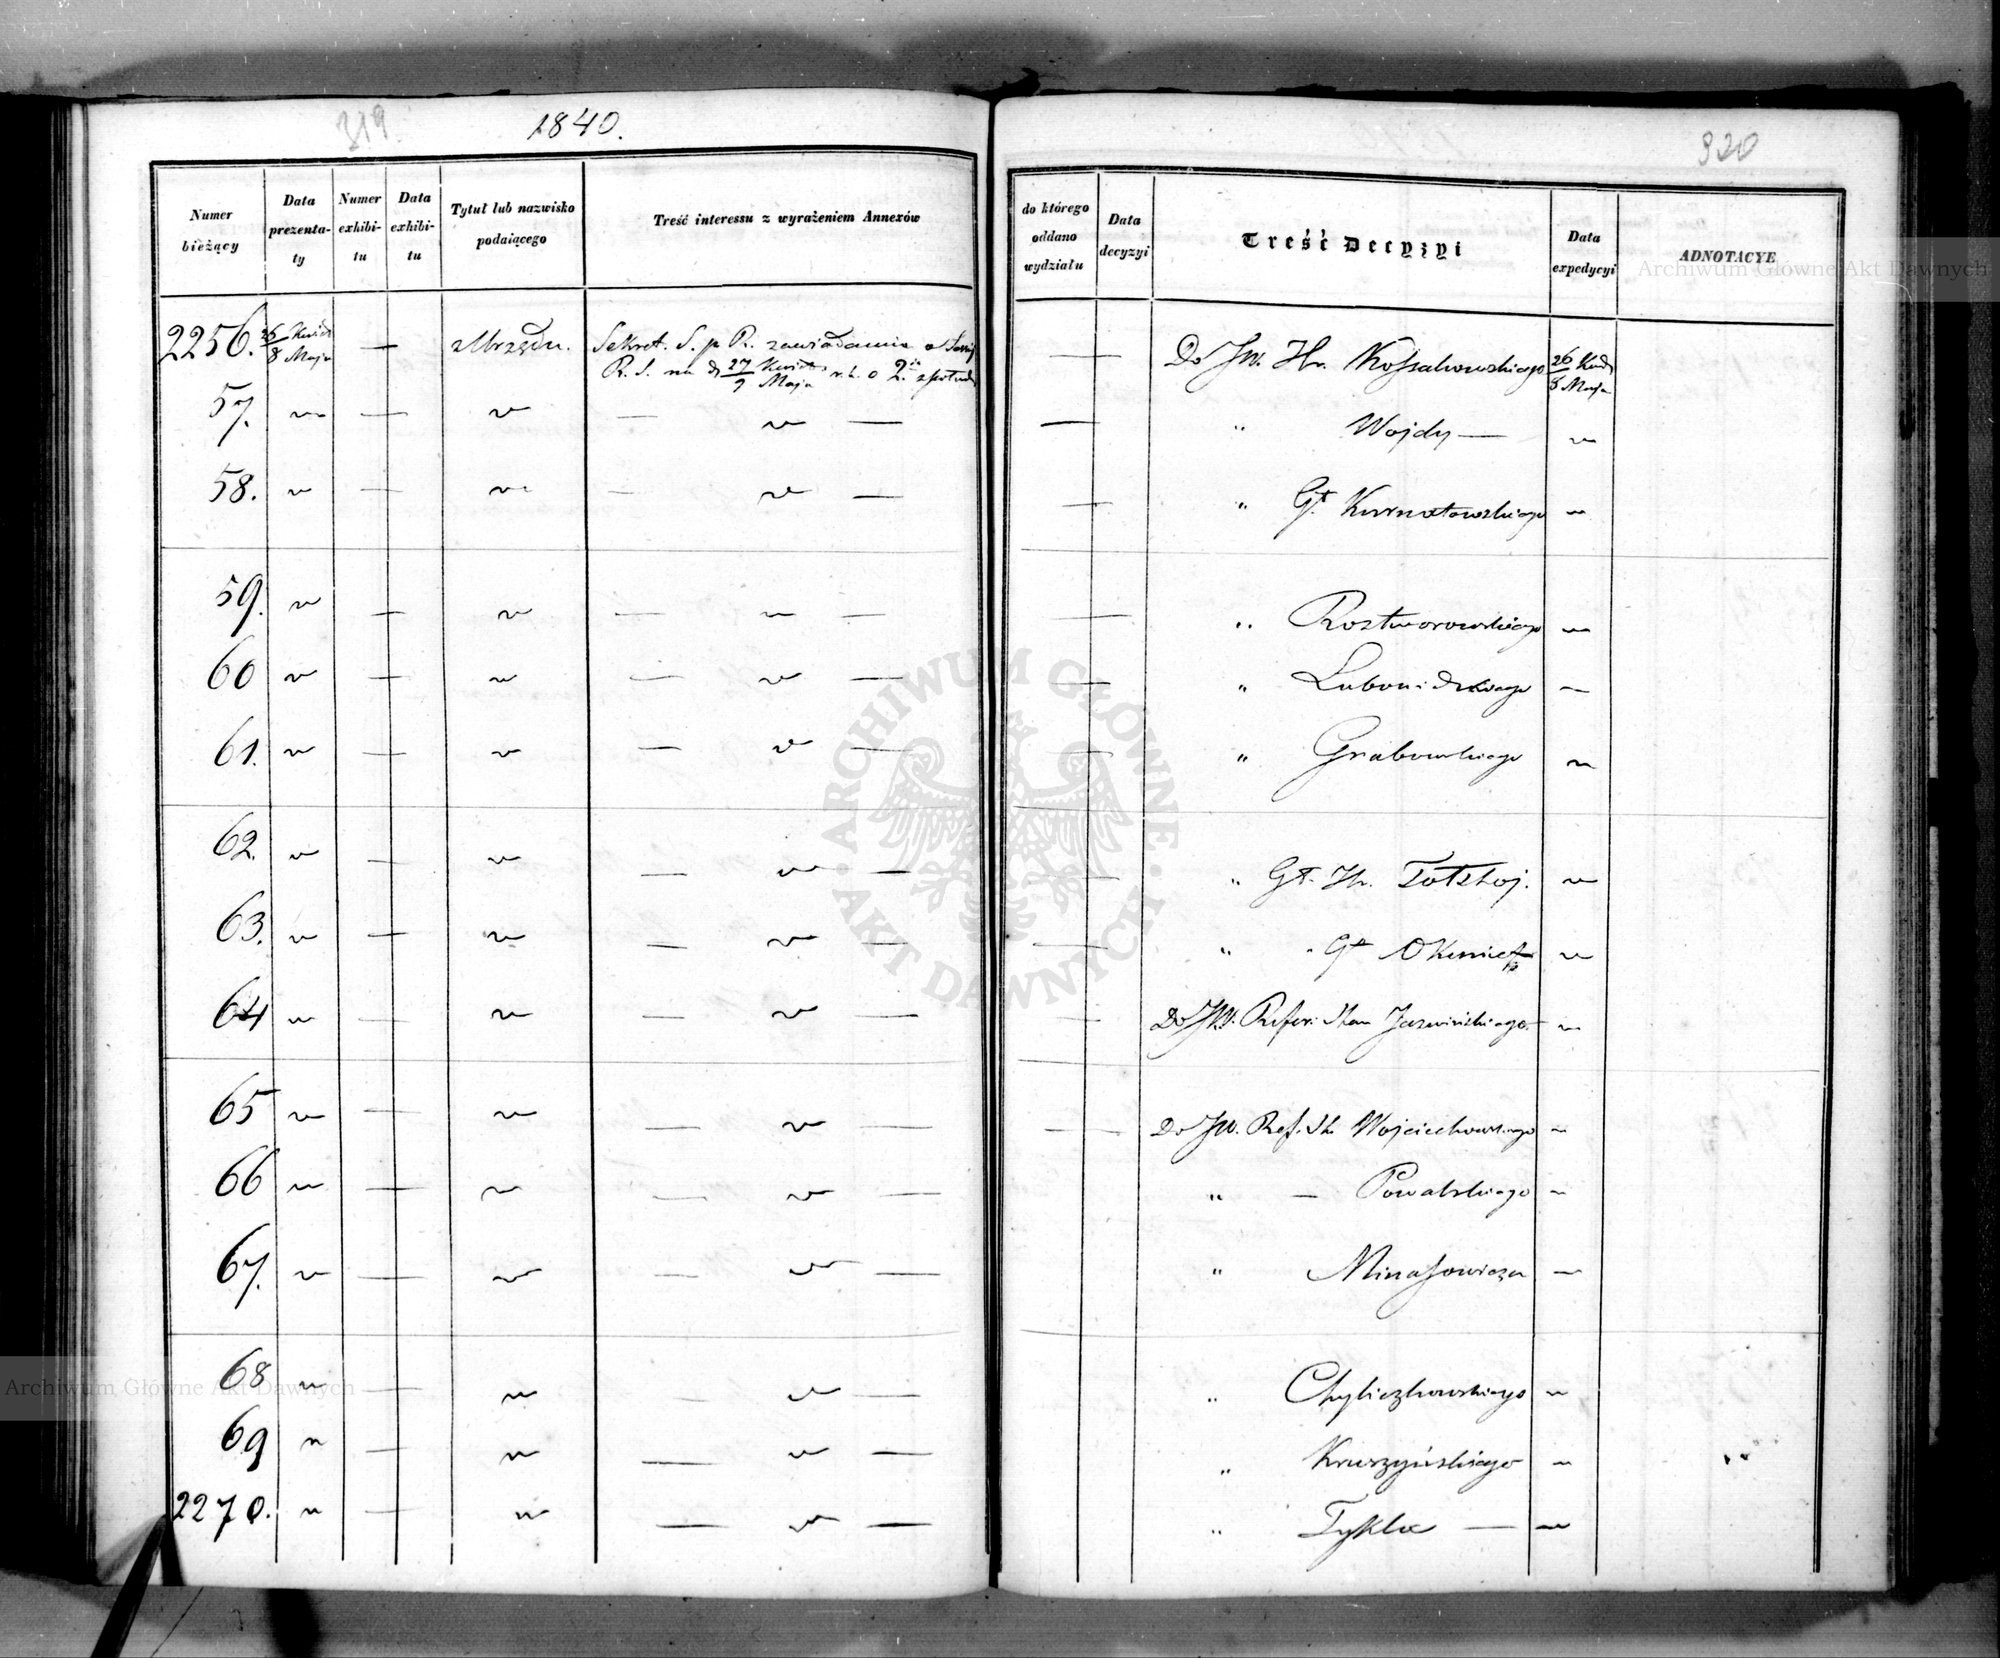 319.
1840.
320
Numer bieżący
Data prezenta-ty
Numer exhibi-tu
Data exhibi-tu
Tytuł lub nazwisko podaiącego
Treść interessu z wyrażeniem Annexów
do którego oddano wydziału
Data decyzyi
Treść Decyzyi
Data expedycyi
ADNOTACYE
2256. 26/8 Kwiet/Maja — z Urzędu. Sekret. S. p R. zawiadamia o Sessyi — Do JW. Hr. Kossakowskiego 26/8 Kwiet/Maja
R. S. na d 27/9 Kwiet/Maja r. b. o 2.
57. " — " — " — — " Wojdy — "
58. " — " — " — — " Gł. Kurnatowskiego "
59. " — " — " — — " Roztworowskiego "
60 " — " — " — — " Lubowidzkiego "
61. " — " — " — — " Grabowskiego "
62. " — " — " — — " Gł. Hr. Tołstoj. "
63. " — " — " — — " " Gł Okuniew "
64 " — " — " — — Do JW. Refer. Stan Jaszwińskiego "
65 " — " — " — — Do JW. Ref. St. Wojciechowskiego "
66 " — " — " — " — Powalskiego "
67. " — " — " — " Minasowicza "
68 " — " — " — " Chyliczkowskiego "
69 " — " — " — " Kruszyńskiego "
2270. " — " — " — " Tykla — "
ARCHIWUM GŁÓWNE AKT DAWNYCH
Archiwum Główne Akt Dawnych
Archiwum Główne Akt Dawnych